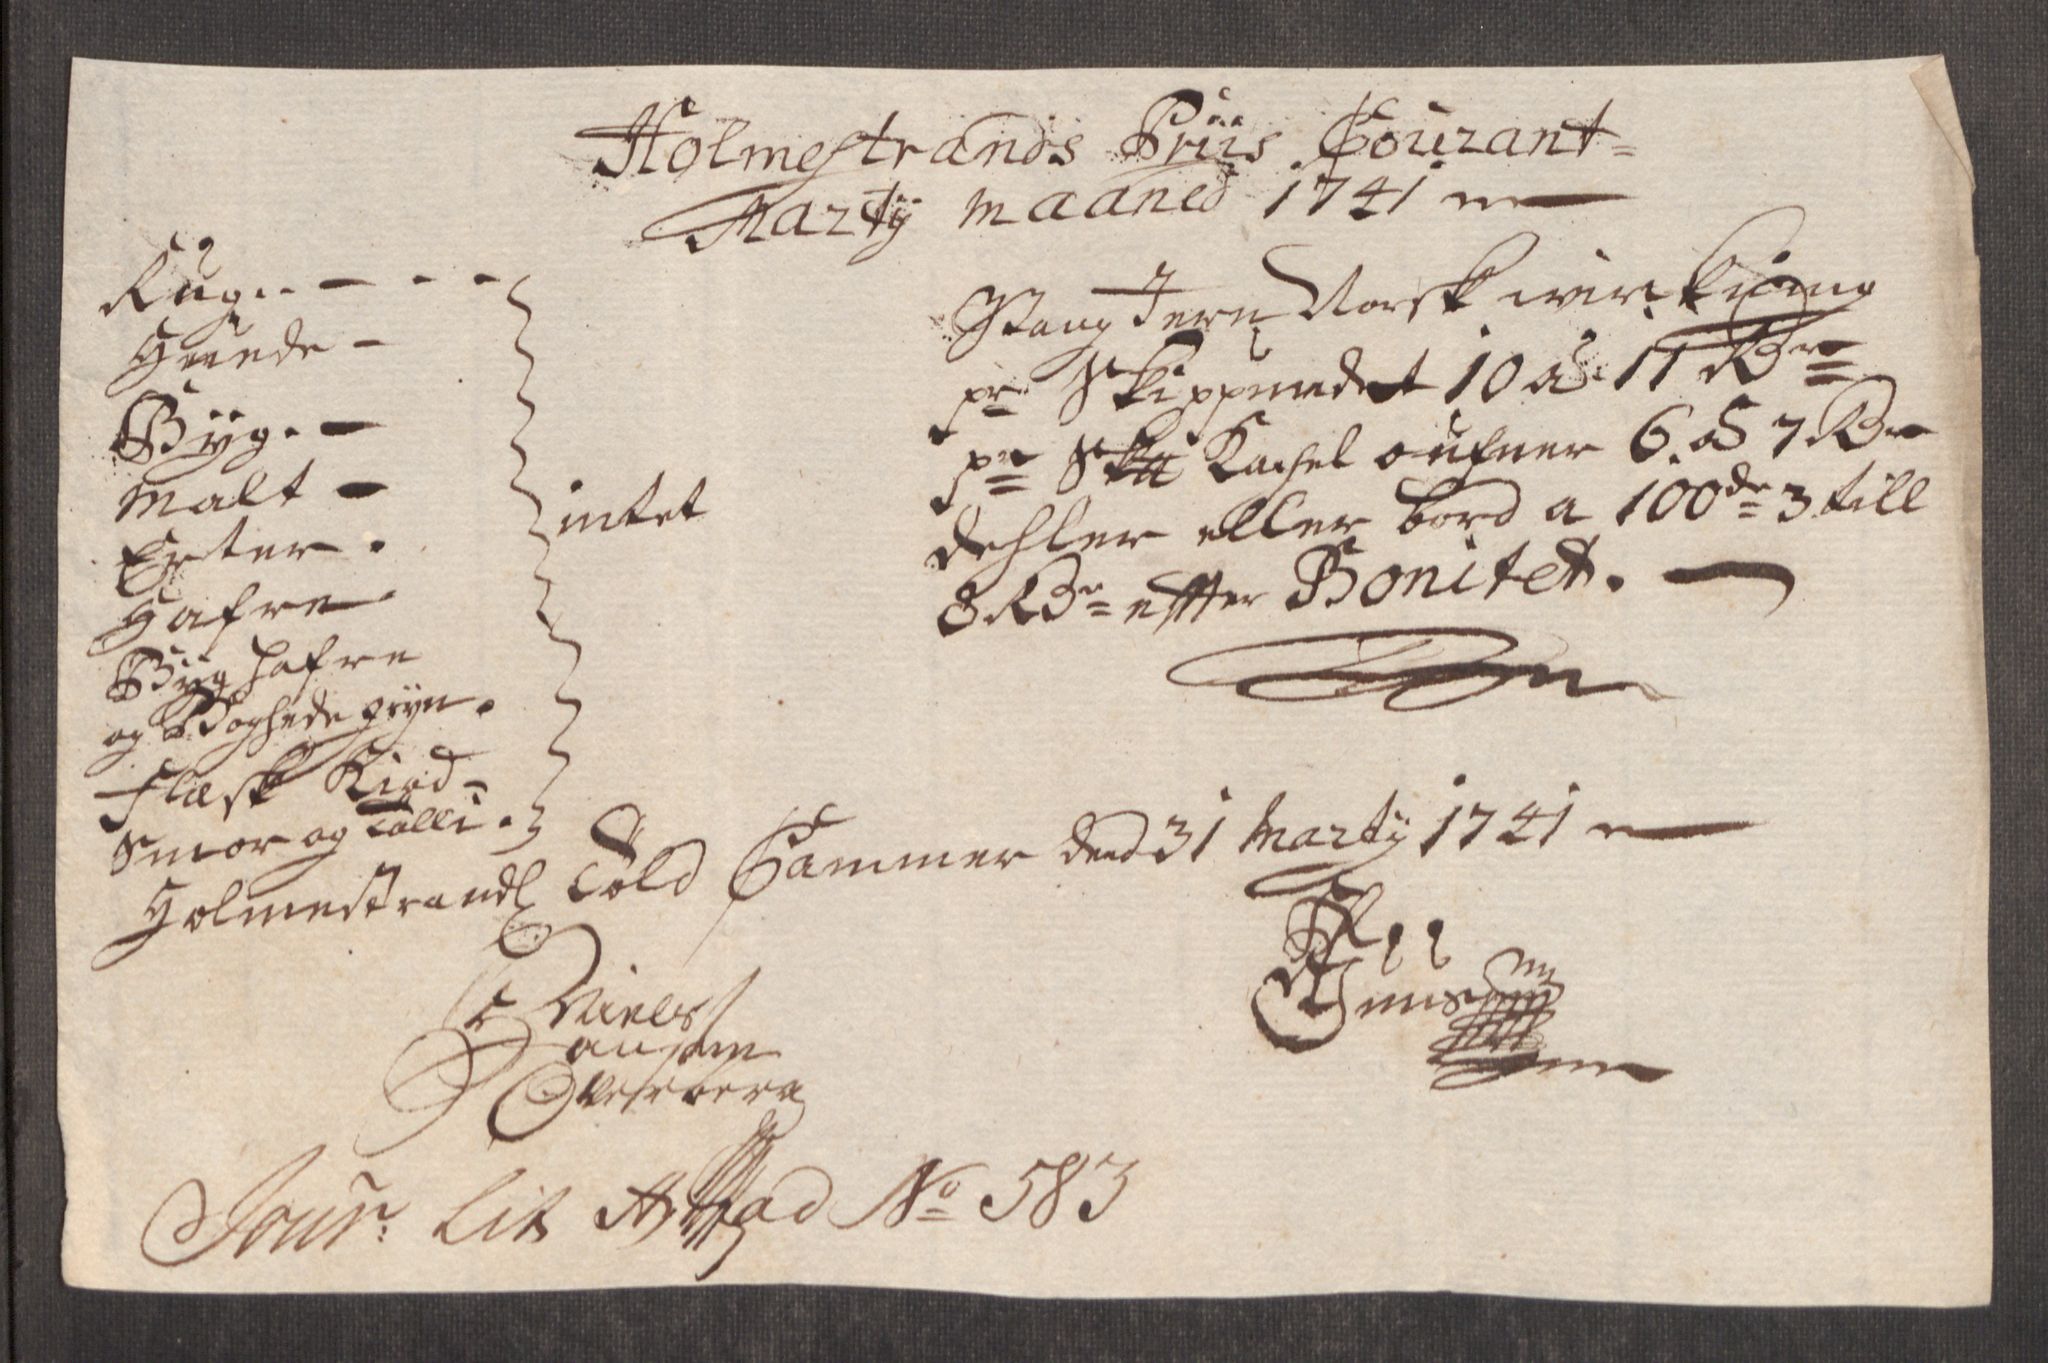 Holmestrands Priis Courant
Marty maaned 1741
Rug
Hvede
Byg
Malt
Erter
Hafre
Byg hafre
og Boghede gryn
Flæsk Kiød
Smør og Talli
intet
Stang Jern Norsk wirkning
pr Skippundet 10 à 11 Rr
pr Sk Kachel oufner 6 à 7 Rr
dehler eller bord a 100de 3 till
8 Rr effter Bonitet.
Holmestrands Told Cammer dend 31 Marty 1741
Niels
Jour. Lit A ad No 583